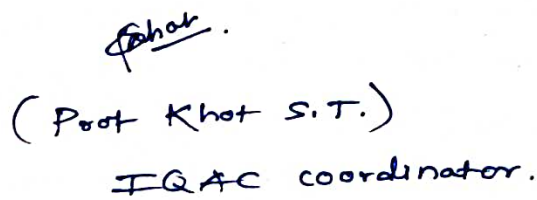 (Prof Khot S.T.)
IQAC coordinator.